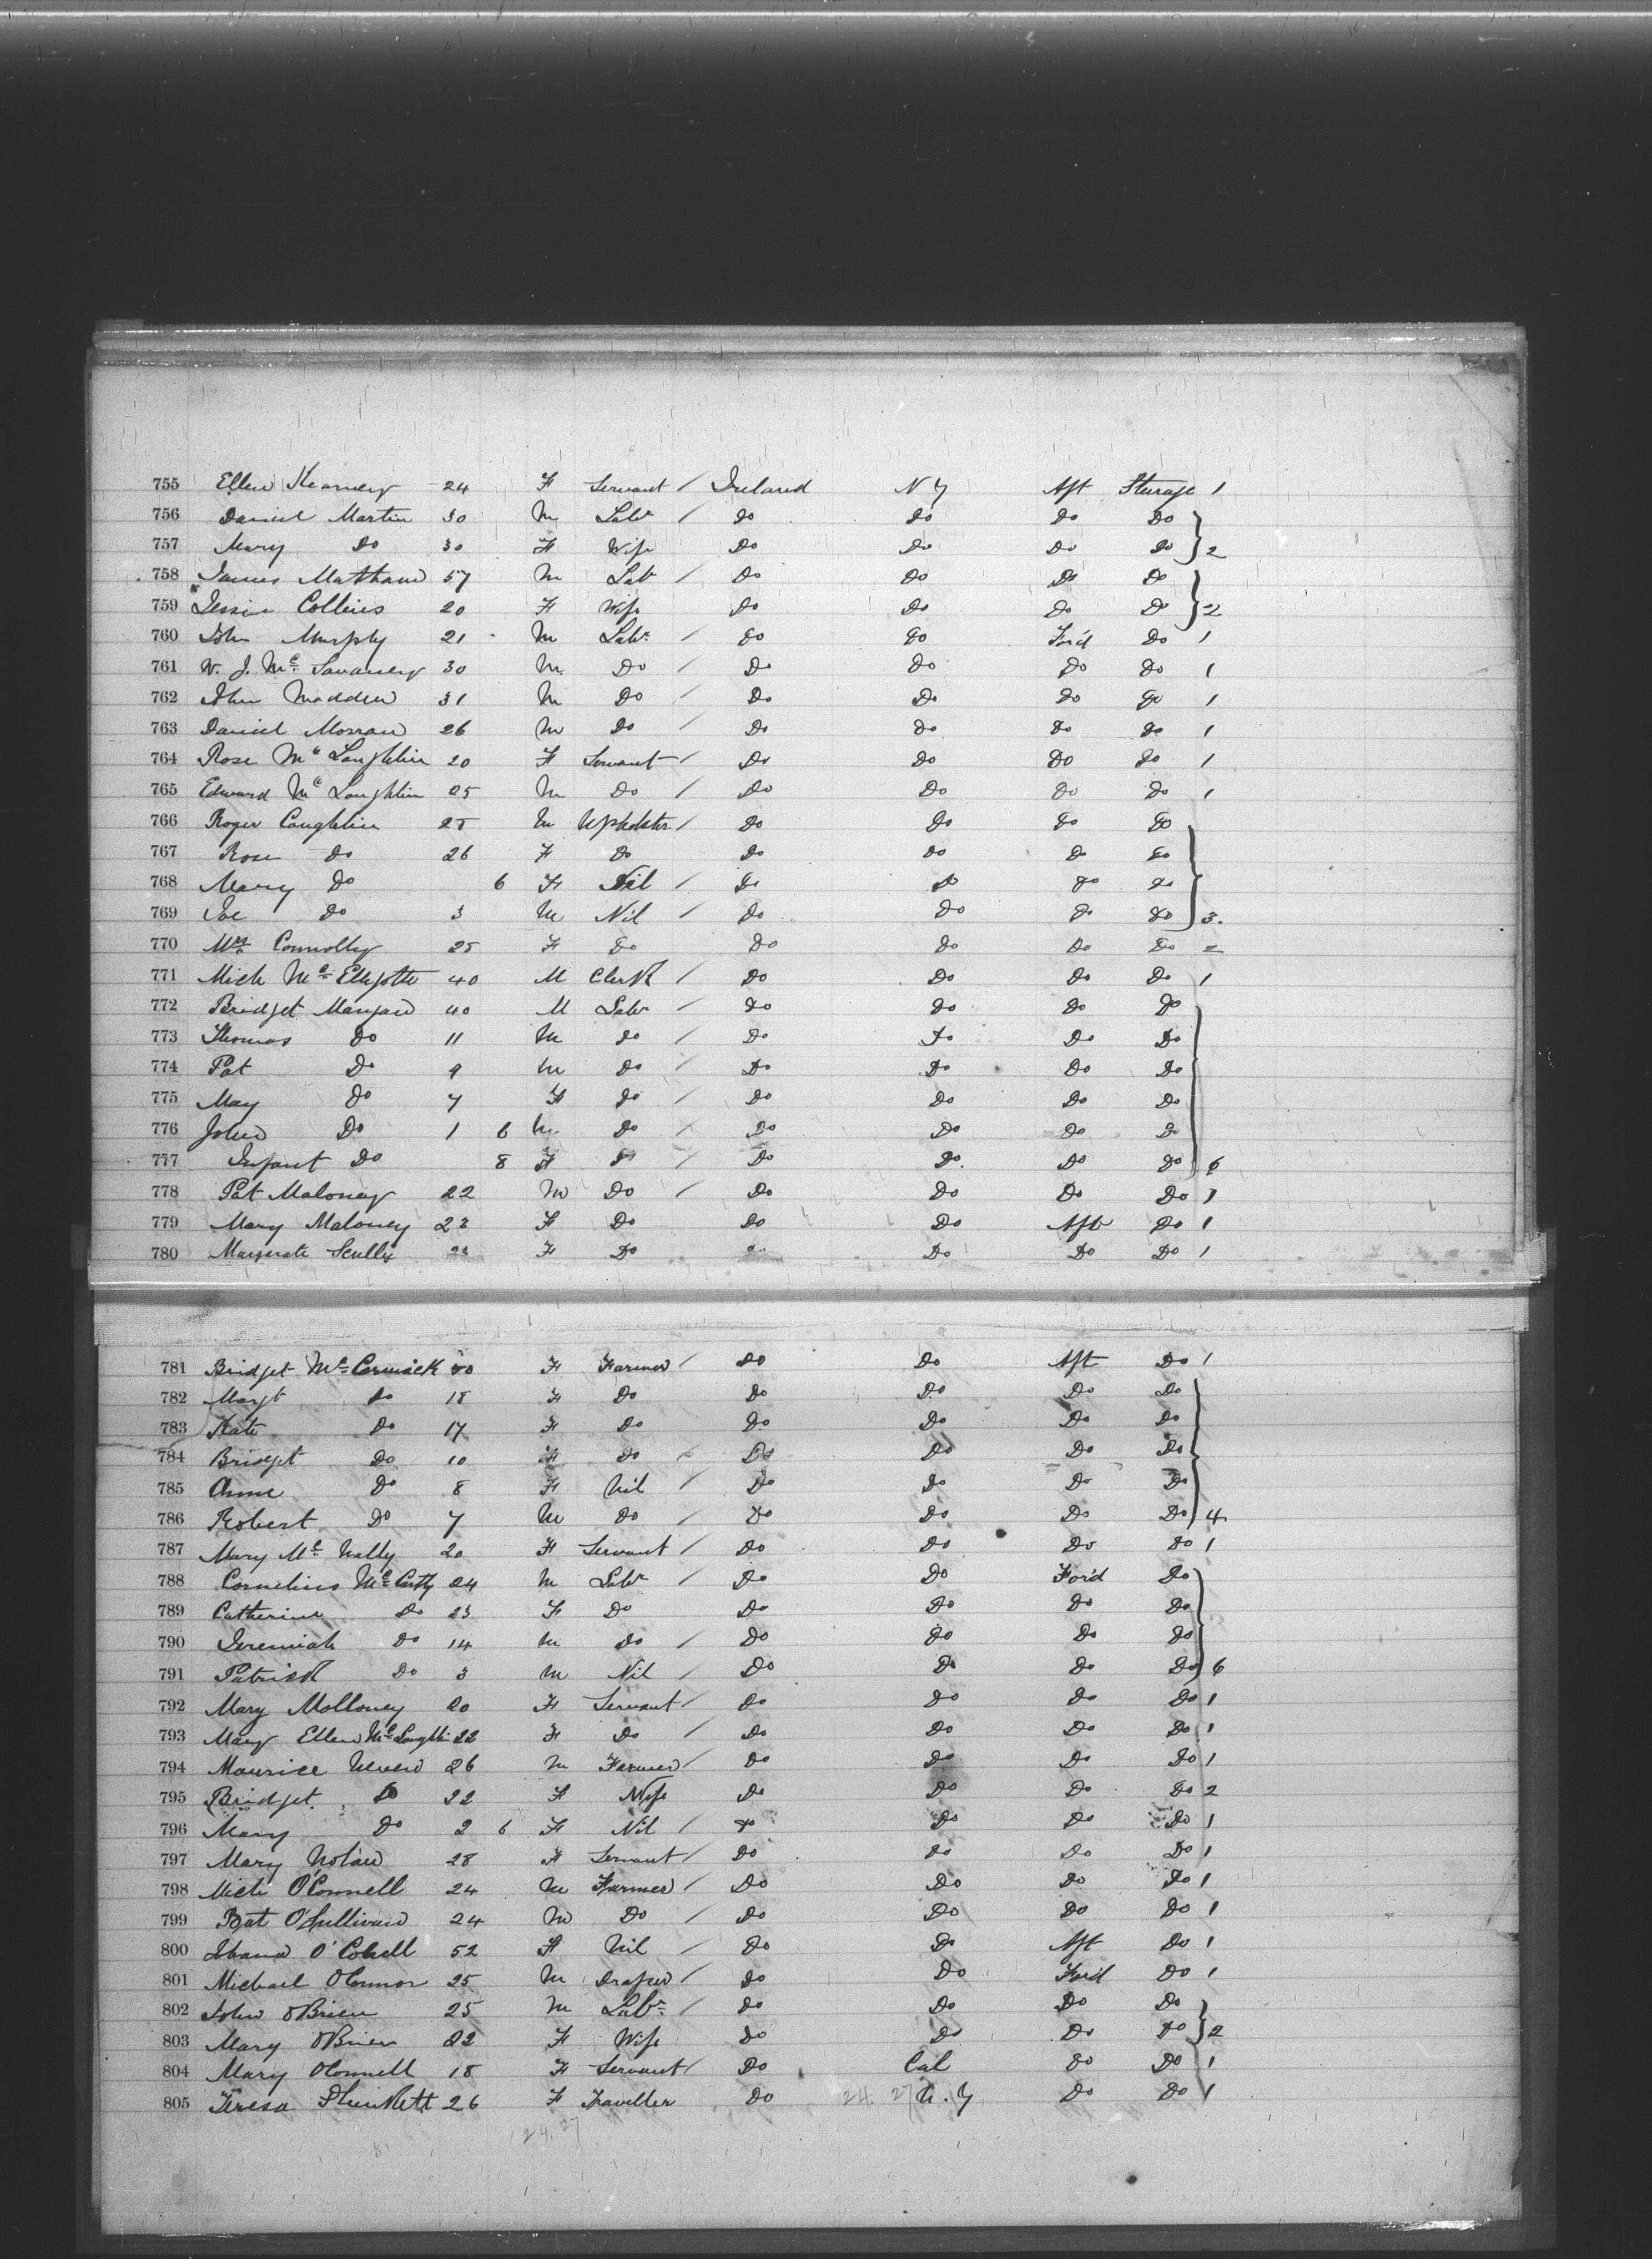 755 Ellen Kearney 24 F Servant / Ireland N Y Aft Sturage 1
756 Daniel Martin 30 M Labr / Do Do Do Do
757 Mary Do 30 F Wife Do Do Do Do 2
758 James 57 M Lab / Do Do Do Do
759 Jessie Collins 20 F Wife Do Do Do Do 2
760 John Murphy 21 M Labr / Do Do For'd Do 1
761 W. J. Mc 30 M Do / Do Do Do Do 1
762 John Madden 31 M Do / Do Do Do Do 1
763 Daniel Morran 26 M Do / Do Do Do Do 1
764 Rose Mc Loughlin 20 F Servant / Do Do Do Do 1
765 Edward Mc Loughlin 25 M Do / Do Do Do Do 1
766 Roger Coughlin 28 M Upholster / Do Do Do Do
767 Rose Do 26 F Do Do Do Do Do
768 Mary Do 6 F Nil / Do Do Do Do
769 Joe Do 3 M Nil / Do Do Do Do 3.
770 Mrs Connolly 25 F Do Do Do Do Do 2
771 Mich Mc 40 M Clerk / Do Do Do Do 1
772 Bridget Mangan 40 M Labr Do Do Do Do
773 Thomas Do 11 M Do / Do Do Do Do
774 Pat Do 9 M Do / Do Do Do Do
775 May Do 7 F Do / Do Do Do Do
776 John Do 1 6 M Do / Do Do Do Do
777 Infant Do 8 F Do / Do Do Do Do 6
778 Pat Maloney 22 M Do / Do Do Do Do 1
779 Mary Maloney 22 F Do Do Do Aft Do 1
780 Margarate Scully 22 F Do Do Do Do Do 1
781 Bridget Mc Cormick 50 F Farmer / Do Do Aft Do 1
782 Margt Do 18 F Do Do Do Do Do
783 Kate Do 17 F Do Do Do Do Do
784 Bridget Do 10 F Do / Do Do Do Do
785 Anne Do 8 F Nil / Do Do Do Do
786 Robert Do 7 M Do / Do Do Do Do 4
787 Mary Mc Nally 20 F Servant / Do Do Do Do 1
788 Cornelius Mc Carthy 24 M Labr / Do Do For'd Do
789 Catherine Do 23 F Do Do Do Do Do
790 Jeremiah Do 14 M Do / Do Do Do Do
791 Patrick Do 3 M Nil / Do Do Do Do 6
792 Mary Molloney 20 F Servant / Do Do Do Do 1
793 Mary Ellen Mc Loughlin 22 F Do / Do Do Do Do 1
794 Maurice 26 M Farmer / Do Do Do Do 1
795 Bridget Do 22 F Wife Do Do Do Do 2
796 Mary Do 2 6 F Nil / Do Do Do Do 1
797 Mary Nolan 28 F Servant / Do Do Do Do 1
798 Mich O'Connell 24 M Farmer / Do Do Do Do 1
799 Bat O'Sullivan 24 M Do / Do Do Do Do 1
800 52 F Nil / Do Do Aft Do 1
801 Michael O'Connor 25 M Draper / Do Do For'd Do 1
802 John O'Brien 25 M Labr / Do Do Do Do
803 Mary O'Brien 22 F Wife Do Do Do Do 2
804 Mary O'Connell 18 F Servant / Do Cal Do Do 1
805 Teresa Plunkett 26 F Traveller Do 24. 27 N. Y Do Do 1
24. 27